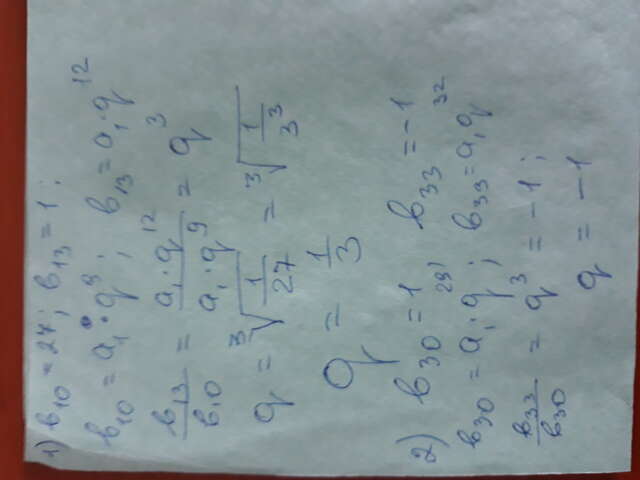 1) b₁₀ = 27; b₁₃ = 1;
b₁₀ = a₁ · q⁹; b₁₃ = a₁ · q¹²
b₁₃/b₁₀ = a₁ · q¹²/a₁ · q⁹ = q³
q = ∛(1/27) = ∛(1/3³)
q = 1/3
2) b₃₀ = 1, b₃₃ = -1
b₃₀ = a₁ · q²⁹; b₃₃ = a₁q³²
b₃₃/b₃₀ = q³ = -1;
q = -1